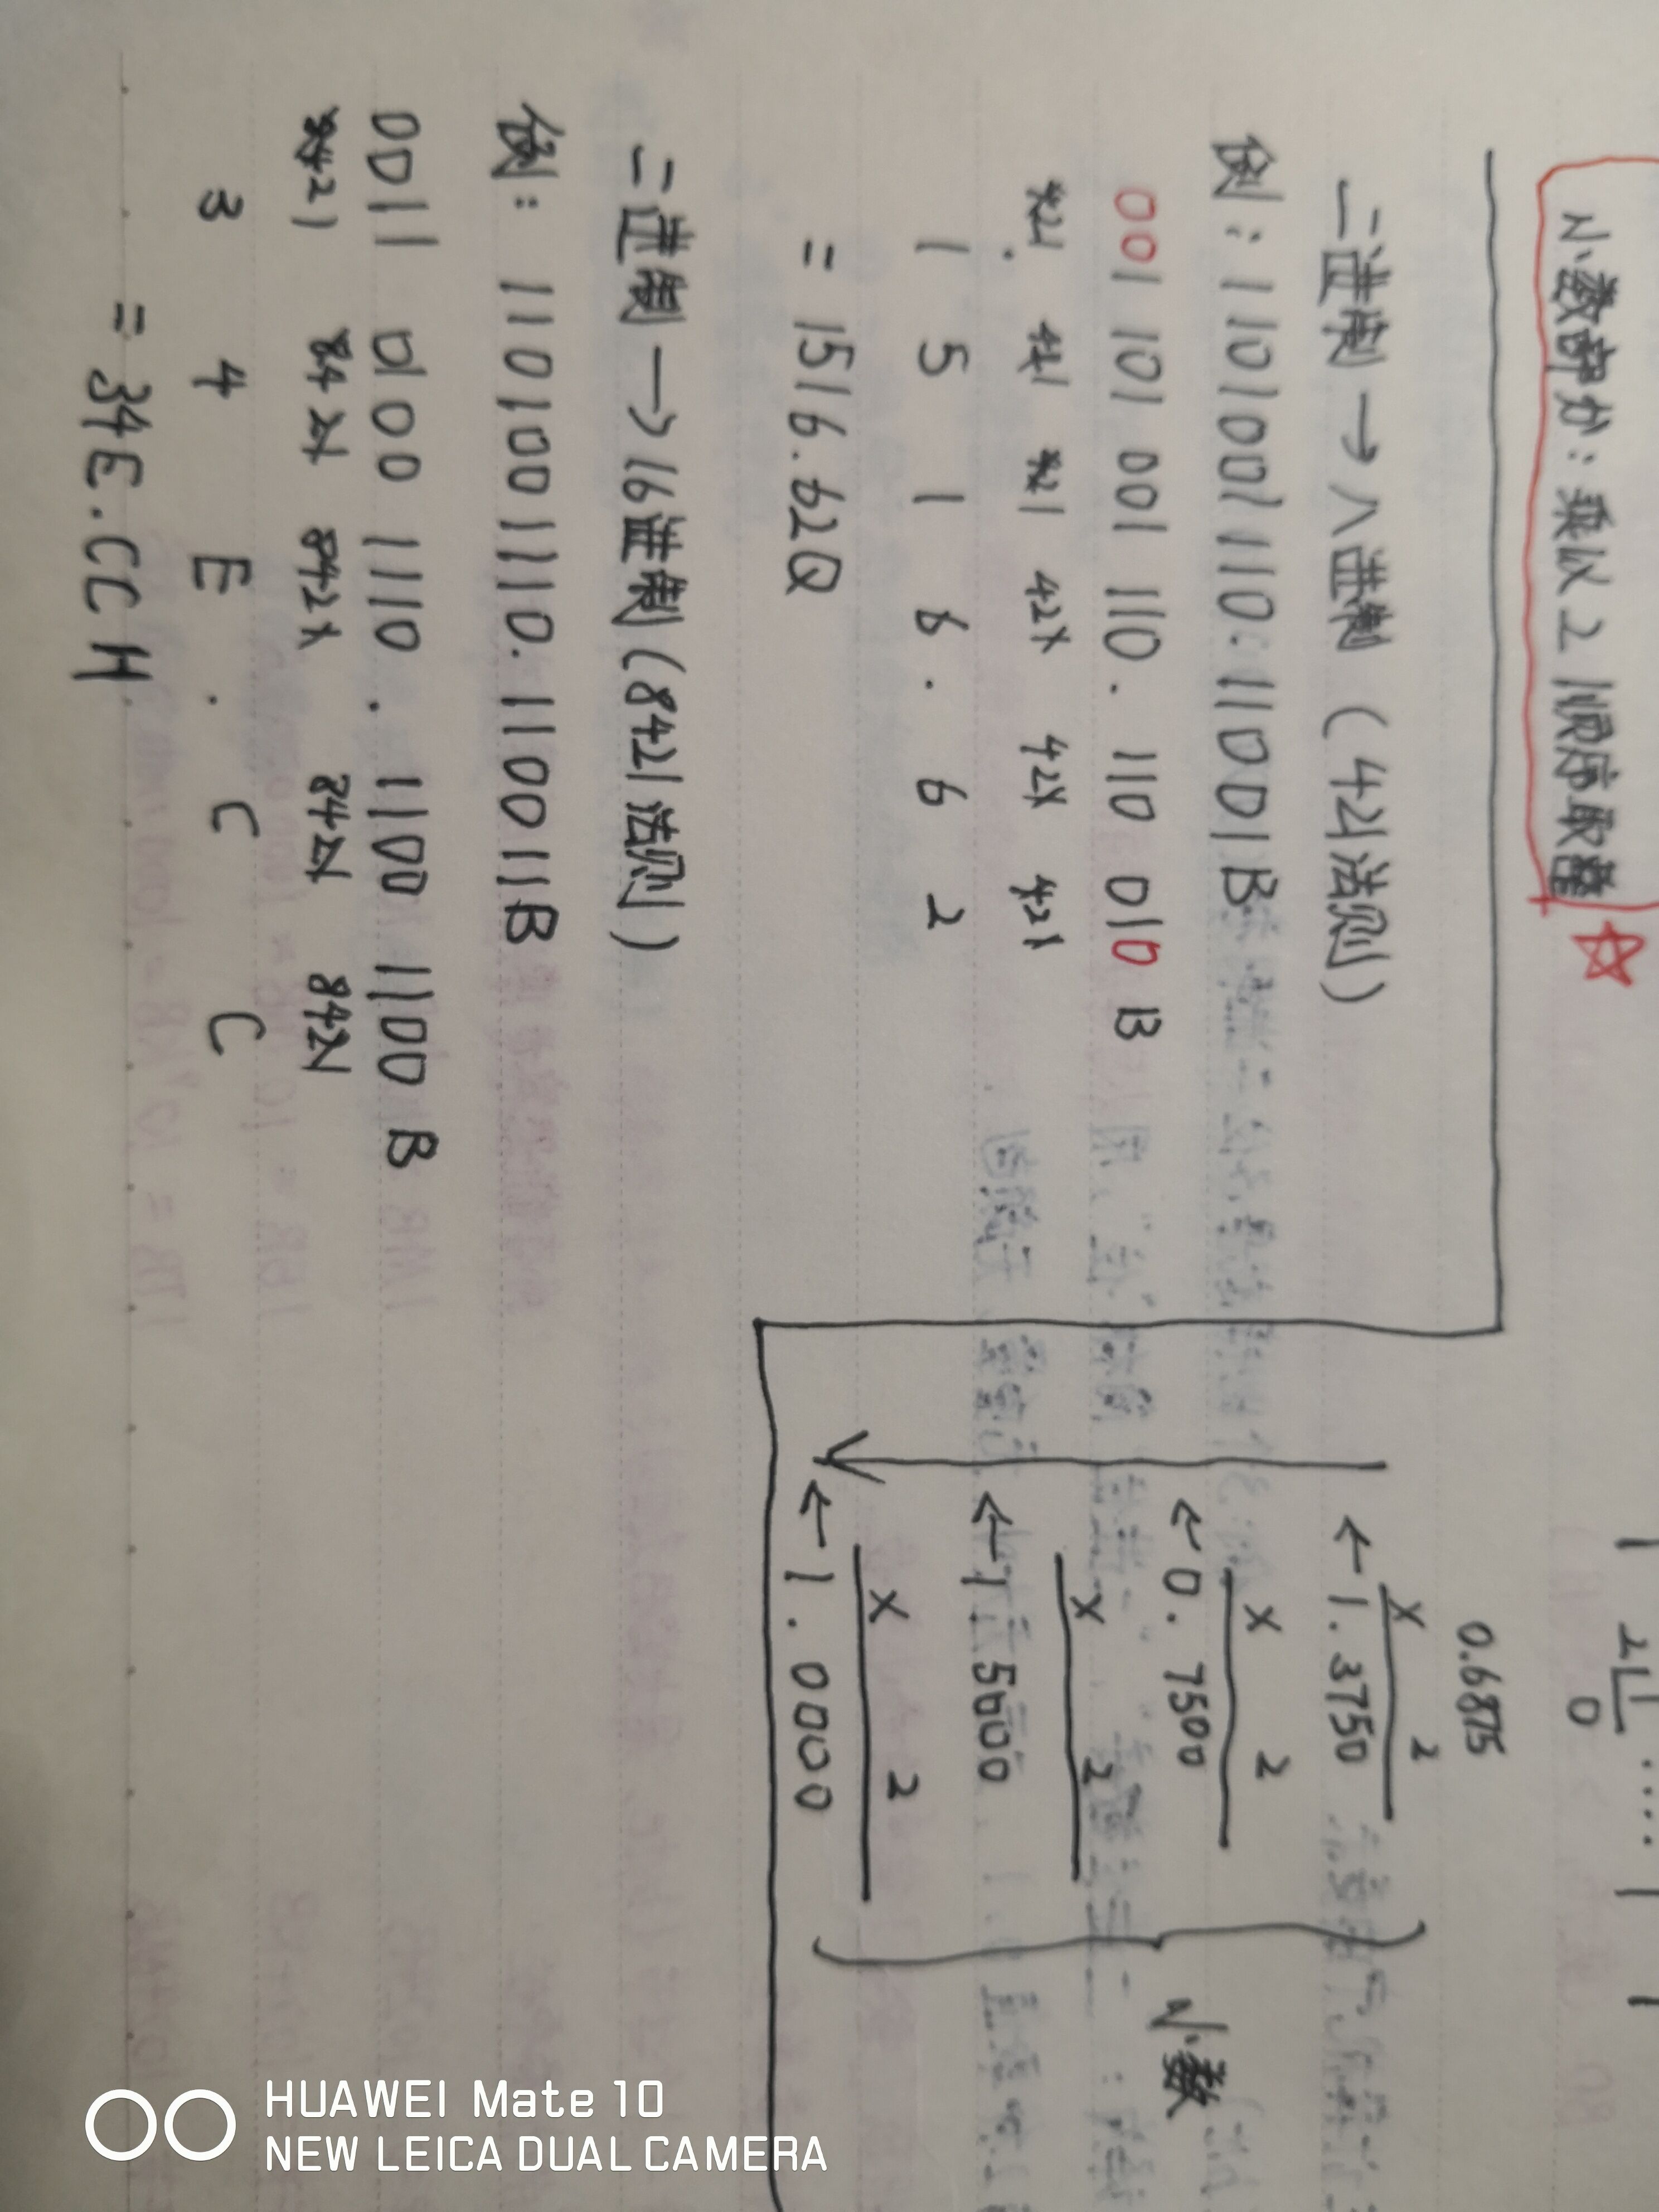 小数部分：乘以2顺序取整
1 1 1
2 1 ....
0
二进制→八进制（421法则）
例：1101001110.11001B
001 101 001 110. 110 010 B
421 421 421 421 421 421
1 5 1 6. 6 2
= 1516.62Q
0.6875
× 2
←1.3750
× 2
←0.7500
× 2
←1.5000
× 2
←1.0000
小数
二进制→16进制（8421法则）
例：1101001110.110011B
0011 0100 1110. 1100 1100 B
8421 8421 8421 8421 8421
3 4 E . C C
=34E.CCH
HUAWEI Mate 10
NEW LEICA DUAL CAMERA